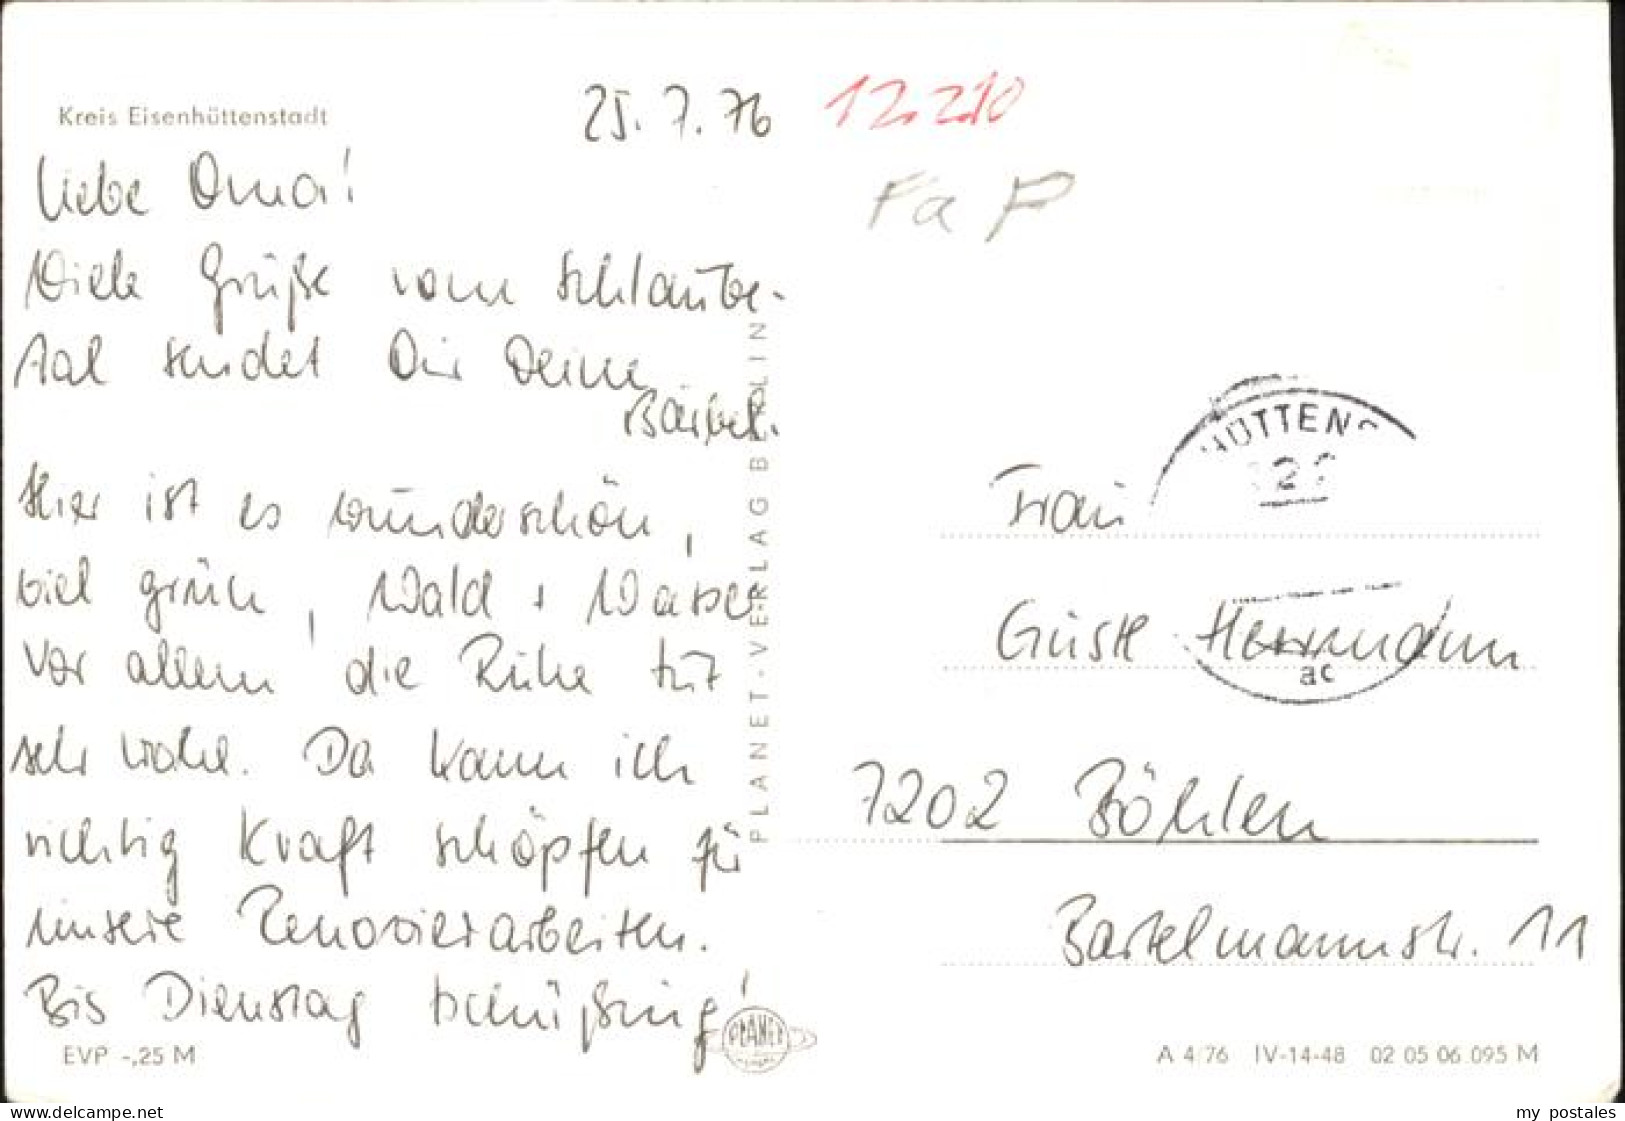 Kreis Eisenhüttenstadt
25.7.76
12.210
Fa P
Liebe Oma!
Viele Grüße vom Schlaube-
tal sendet Dir Deine
Bärbel.
Hier ist es wunderschön,
viel grün, Wald + Wasser
Vor allem die Ruhe tut
sehr wohl. Da kann ich
richtig Kraft schöpfen für
unsere Renovierarbeiten.
Bis Dienstag
EVP -,25 M
PLANET-VERLAG BERLIN
PLANET
HÜTTENS
ac
Frau
Guste Herrmann
7202 Böhlen
Bartelmannstr. 11
A 4/76 IV-14-48 02 05 06 095 M
my-archiv.com
my postales